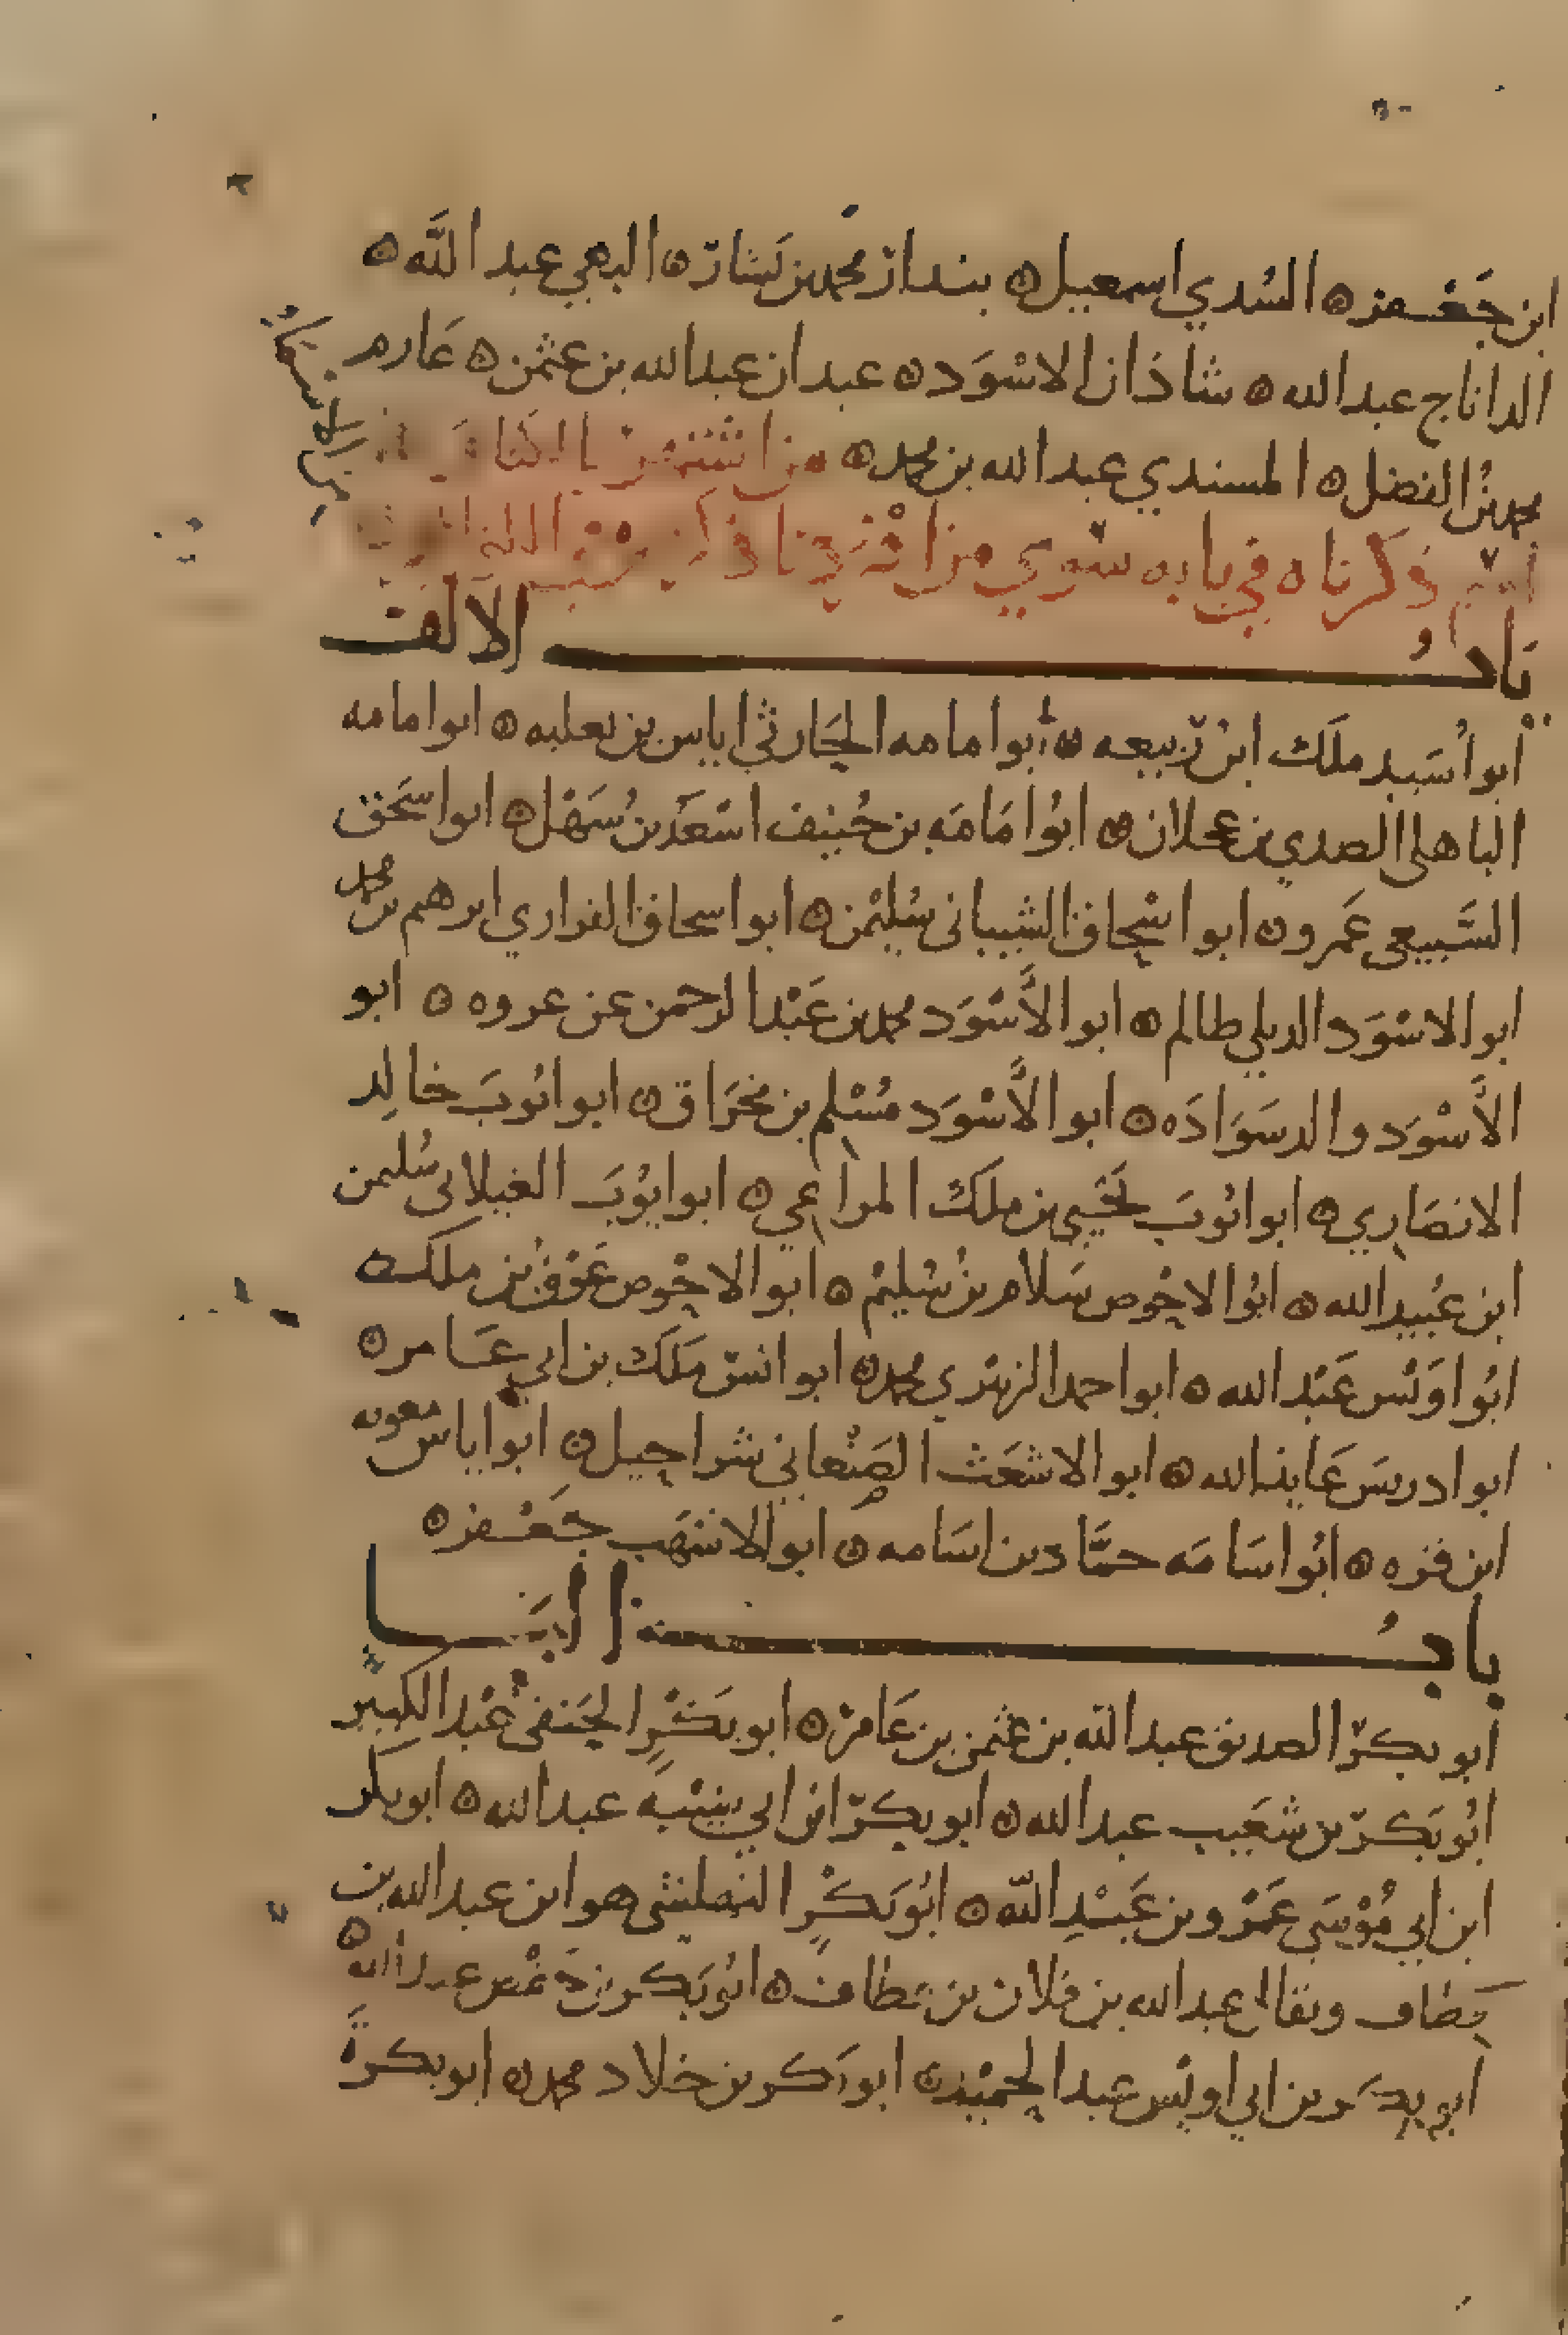 ابن جَعْفر ه السُدي اسمعيل ه بندار محمد بن بَشار ه البهي عبد اللَّه ه
الداناج عبد الله ه شاذان الاسْوَد ه عبدان عبد الله بن عثمن ه عَارم
محمد بنُ الفضل ه المسندي عبد الله بن محمد ه من اشتهر بالكنا
ذكرناه في بابه سوي من
بَابُ الالف
أبو اُسَيد ملَك ابن رَبيعه ه أبو امامه الحَارثي اياس بن ثعلبه ه ابو امامه
الباهلي الصدي بن عجلان ه ابُو امَامَه بن حُنيف اسْعَد بنُ سَهْل ه ابو اسحَق
السَّبيعي عَمرو ه ابو اسْحاق الشيباني سُليْمن ه ابو اسحاق الفزاري ابرهيم بن محمد
ابو الاسْوَد الديلي ظالم ه ابو الأَسْوَد محمد بن عَبْد الرحمن عن عروه ه ابو
الأَسْوَد والد سَوَادَه ه ابو الأَسْوَد مُسْلم بن مخرَاق ه ابو ايُوبَ خالِد
الانصَاري ه ابو ايُوبَ يَحْيي بن ملَك المراغي ه ابو ايوُبَ الغيلاني سُليمن
ابن عُبيد الله ه ابُو الاحْوص سَلام بنُ سُليْم ه ابو الاحْوص عَوْفُ بن ملك ه
ابُو اوَيْس عَبْد الله ه ابو احمد الزبيْري محمد ه ابو انسْ ملَك بن ابي عَامر ه
ابو ادريسَ عَايذ الله ه ابو الاشعَث الصَنْعاني شراحيل ه ابو اياس معويه
ابن قره ه ابُو اسَامَه حمَّاد بن اسَامه ه ابو الاشهَب جَعْفر ه
بابُ البَا
أبو بكرْ الصديق عبد الله بن عثمن بن عَامرْ ه ابو بَكْرٍ الحَنفي عَبْد الكبير
ابُو بَكرْ بن شعَيب عبد الله ه ابو بكرْ ابن ابي شيْبَه عبد الله ه ابو بكر
ابن ابي مُوْسَي عَمْرو بن عَبْدِ اللَّه ه ابُو بَكْرٍ النهشلي هو ابن عبد الله بن
قطاف ويقال عبد الله بن فلان بن قطاف ه ابُو بَكر بن حَفْص عبد الله ه
ابو بكر بن ابي اويْس عبد الحميْد ه ابو بَكر بن خلاد محمد ه ابو بكرةَ